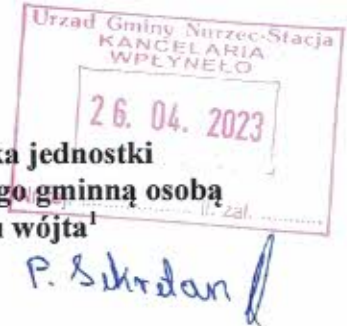 Urząd Gminy Nurzec-Stacja
KANCELARIA
WPŁYNĘŁO
26. 04. 2023
ka jednostki
go gminną osobą
il. zał. ............
u wójta¹
P. Sekretarz